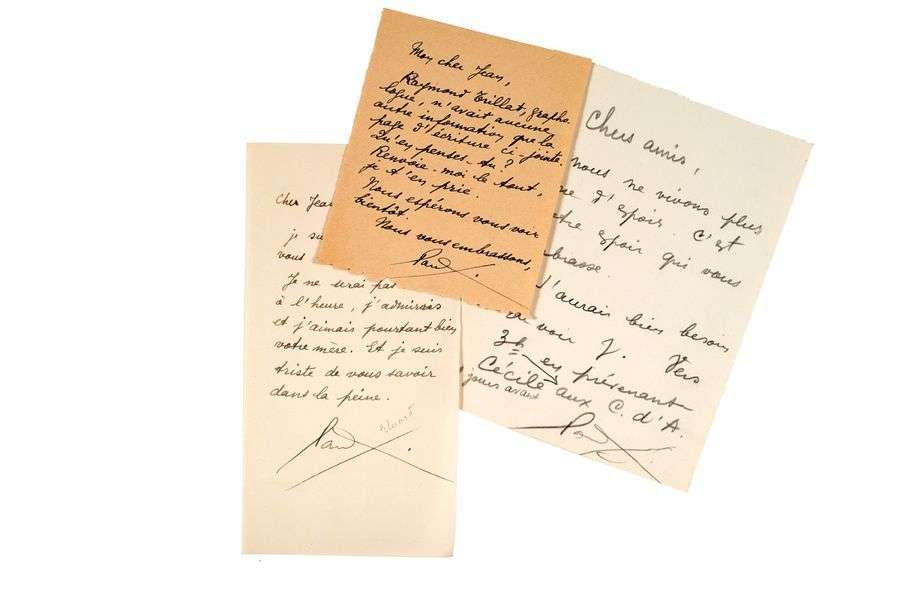 Mon cher Jean,
Raymond Trillat, grapho
logue, n'avait aucune
autre information que la
page d'écriture ci jointe.
Qu'en penses-tu ?
Renvoie-moi le tout,
je t'en prie.
Nous espérons vous voir
bientôt.
Nous vous embrassons,
Paul
Cher Jean
je su
vous
Je ne serai pas
à l'heure, j'admirais
et j'aimais pourtant bien
votre mère. Et je suis
triste de vous savoir
dans la peine.
Paul
Eluard
Chers amis,
nous ne vivons plus
ne d'espoir. C'est
tre espoir qui vous
brasse.
J'aurais bien besoin
de voir J. Vers
3h en prévenant
Cécile aux C. d'A.
jours avant
Paul